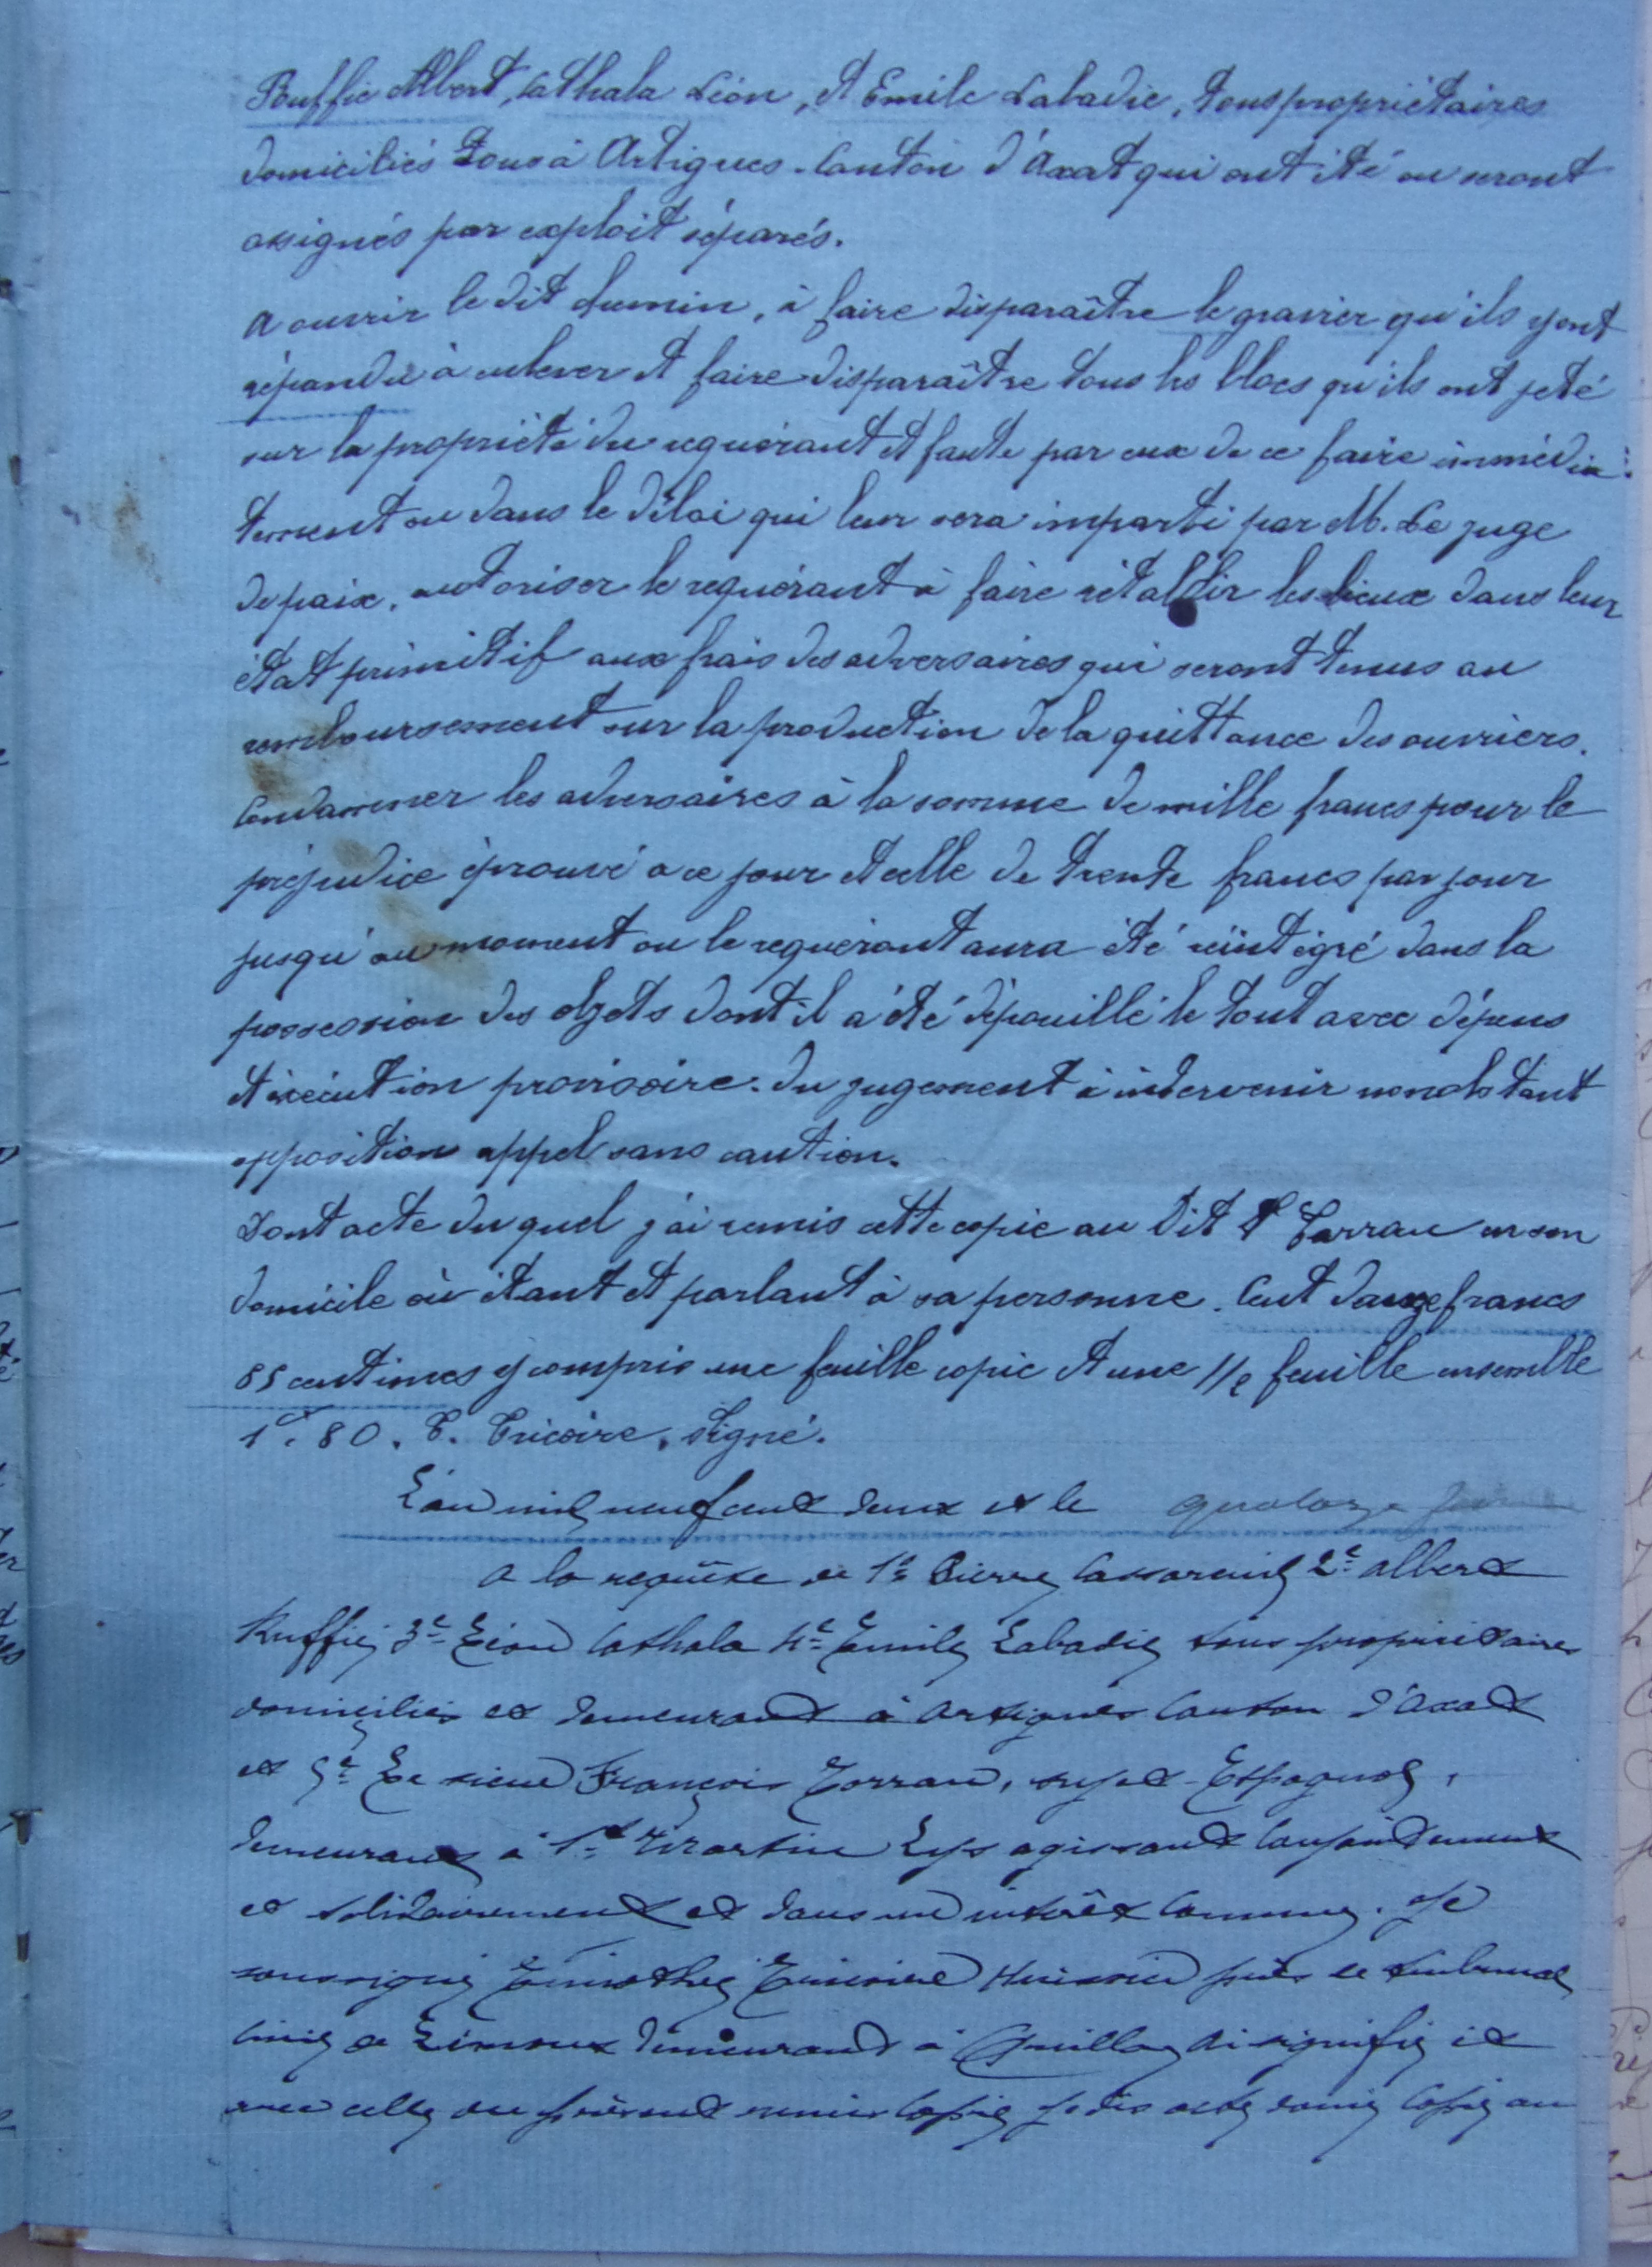 Rouffie Albert, Cathala Léon, et Emile Labadie, tous propriétaires
domiciliés tous à Artigues - Canton d'Axat qui ont été ou seront
assignés par exploit séparés.
A ouvrir le dit chemin, à faire disparaître le gravier qu'ils y ont
répandu à enlever et faire disparaître tous les blocs qu'ils ont jeté
sur la propriété du requérant et faute par eux de ce faire immédia-
tement ou dans le délai qui leur sera imparti par M. Le juge
de paix, autoriser le requérant à faire rétablir les lieux dans leur
état primitif aux frais des adversaires qui seront tenus au
remboursement sur la production de la quittance des ouvriers.
Condamner les adversaires à la somme de mille francs pour le
préjudice éprouvé a ce jour et celle de trente francs par jour
jusqu'au moment ou le requérant aura été réintégré dans la
possession des objets dont il a été dépouillé le tout avec dépens
et exécution provisoire du jugement à intervenir nonobstant
opposition appel sans caution.
Dont acte du quel j'ai remis cette copie au dit Sr Tarrau en son
domicile où étant et parlant à sa personne. Cout douze francs
85 centimes y compris une feuille copie et une 1/2 feuille ensemble
1f. 80. T. Tricoire, signé.
L'an mil neuf cent deux et le quatorze
a la requête de 1º Pierre 2e albert
Ruffie 3e Léon Cathala 4e Emile Labadie tous propriétaires
domiciliés et demeurant à Artigues Canton d'Axat
et 5e Le sieur François Torrau, sujet Espagnol,
demeurant à St Martin Lys agissant conjointement
et solidairement et dans un intérêt commun. Je
soussigné Timothée Tricoire Huissier près le tribunal
civil de Limoux demeurant à Quillan ai signifié et
avec celle du présent remis copie acte copie au